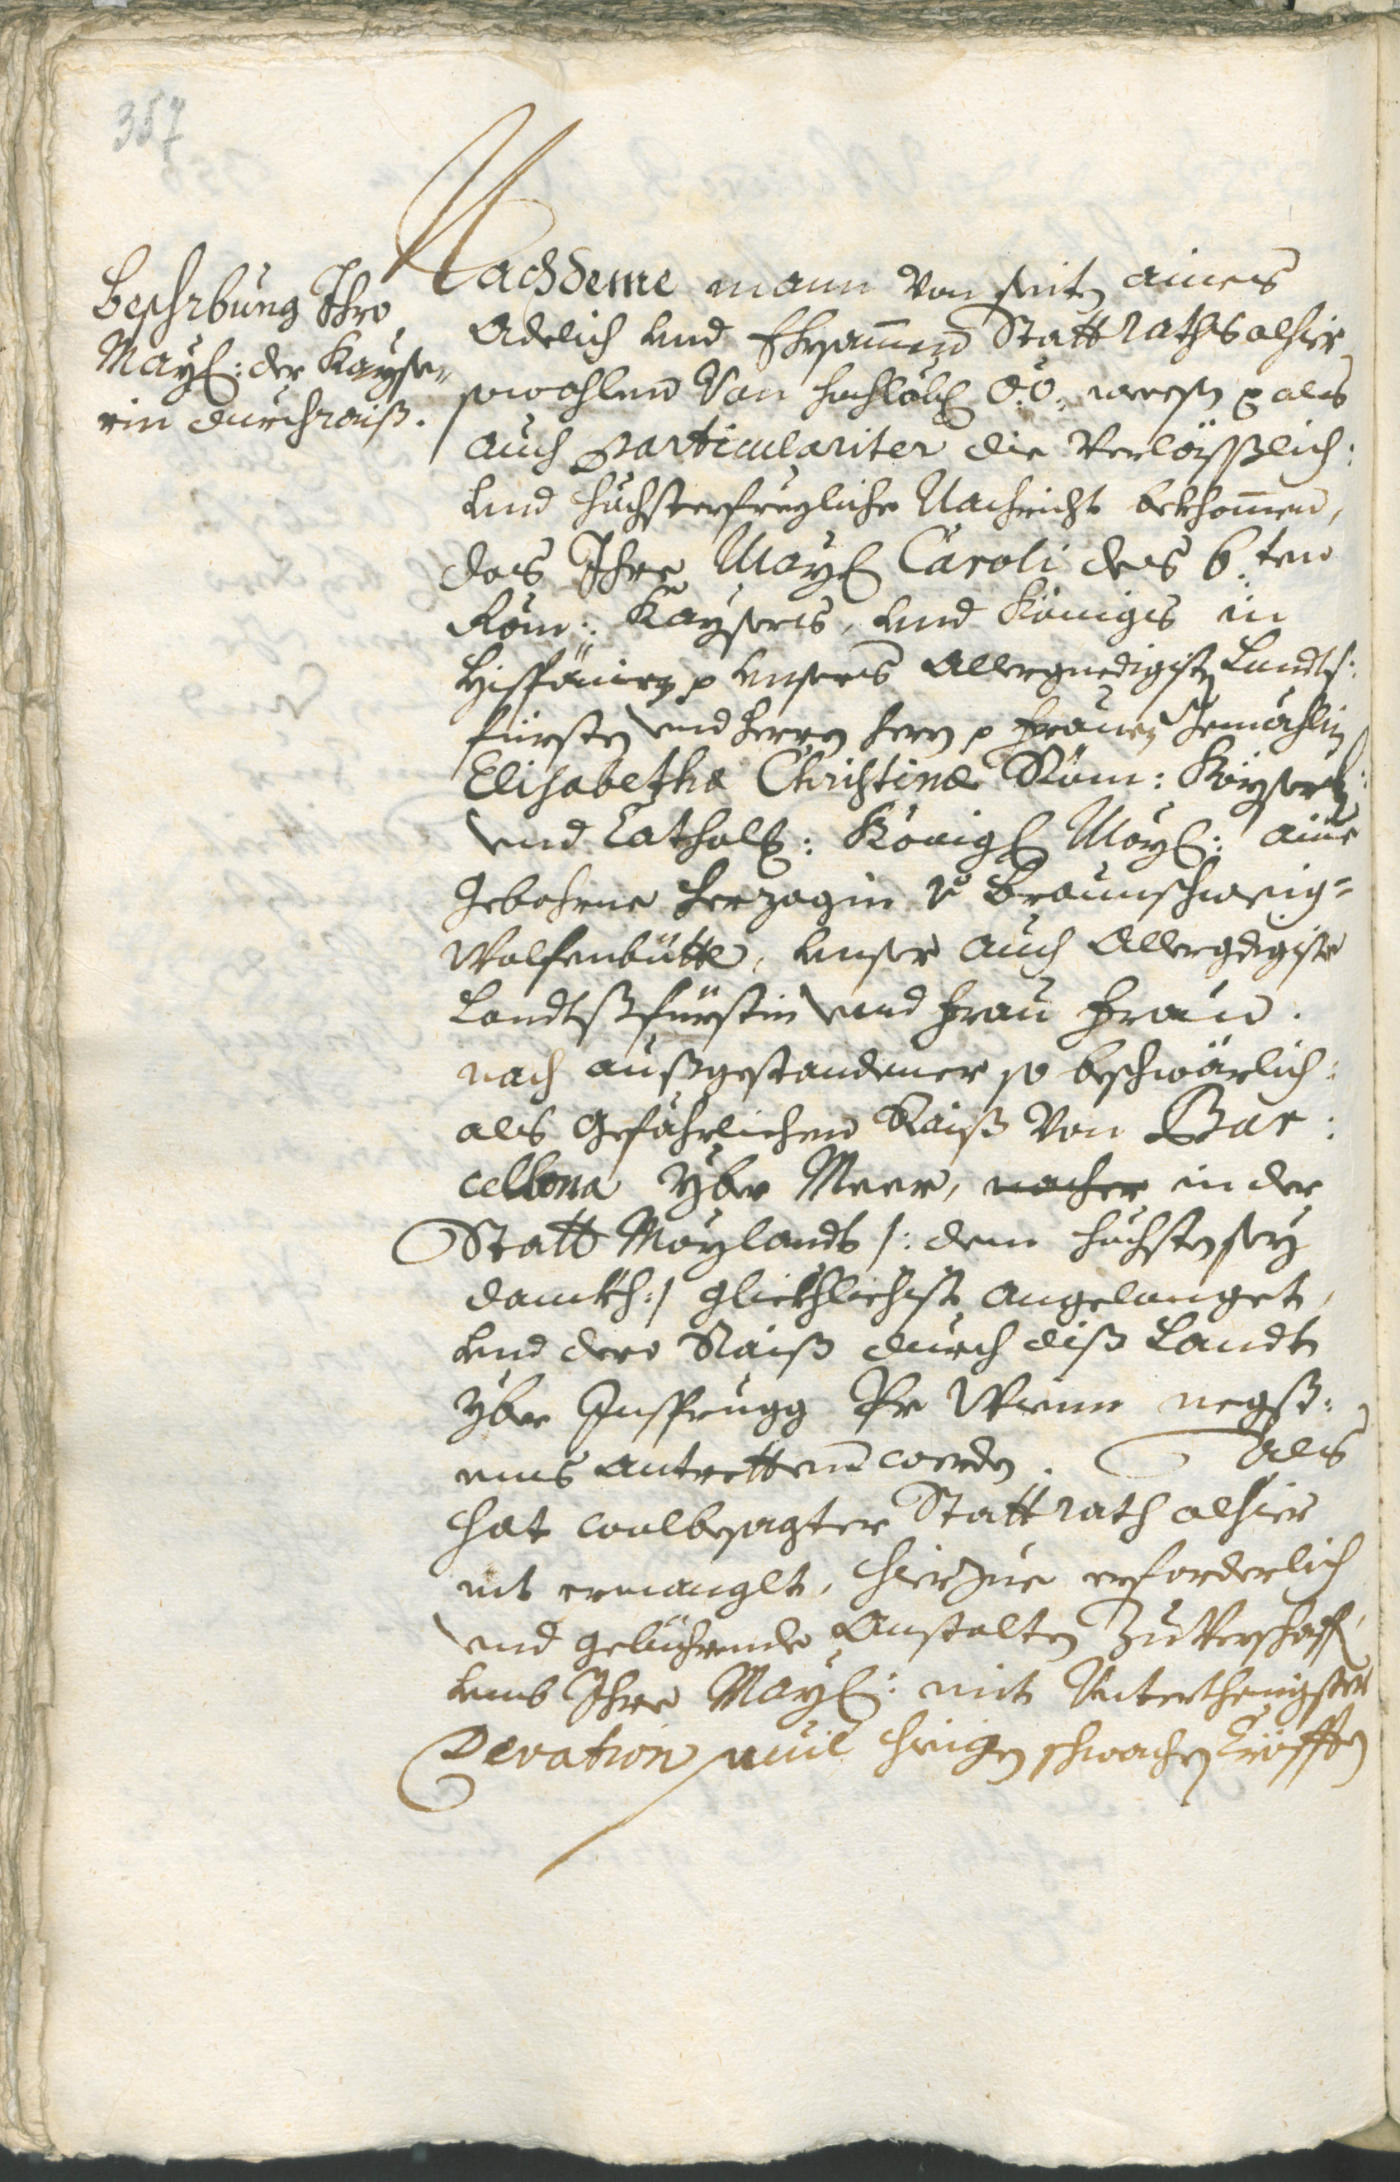 357
Beschrbung Ihro
May: der Kayse„
rin durchraiß.
Nachdeme mann von seitn aines
Adelich und Ehrsammen Statt Raths alhier
sowohlen von hochlöbl: O: Ö: weesen p als
auch particulariter die Verlößßlich:
und höchsterfreyliche Nachricht bekhommen,
das Ihro May: Caroli des 6.ten
Röm: Kaysers, und Königs in
Hispänien p unsers Allergnedigisten Landts:
fürsten und Herren Herrn p Frauen Gemahlin
Elisabetha Christina Röm: Kayserl:
und Cathol: Königl: May: aine
gebohrne Herzogin v: Braunschweig=
Wolfenbütte, unser auch Allergdigiste
Landtßfürstin und Frau Frau.
nach außgestandener so beschwärlich:
als gefährlichen Raiß von Bar:
cellona yber Meer, nacher in der
Statt Maylandt /: dem höchsten sey
danckh :/ glickhlichist angelanget,
und dero Raiß durch diß Landt
yber Insprugg Per Wienn negst:
ens antretten werde. Als
hat wolbesagter Statt Rath alhier
nit ermanglt, hierzue erforderlich
und gebührende Anstalten zu verschaff,
umb Ihro May: mit Unterthenigster
Devation nach hiesigen schwachen Cräfften